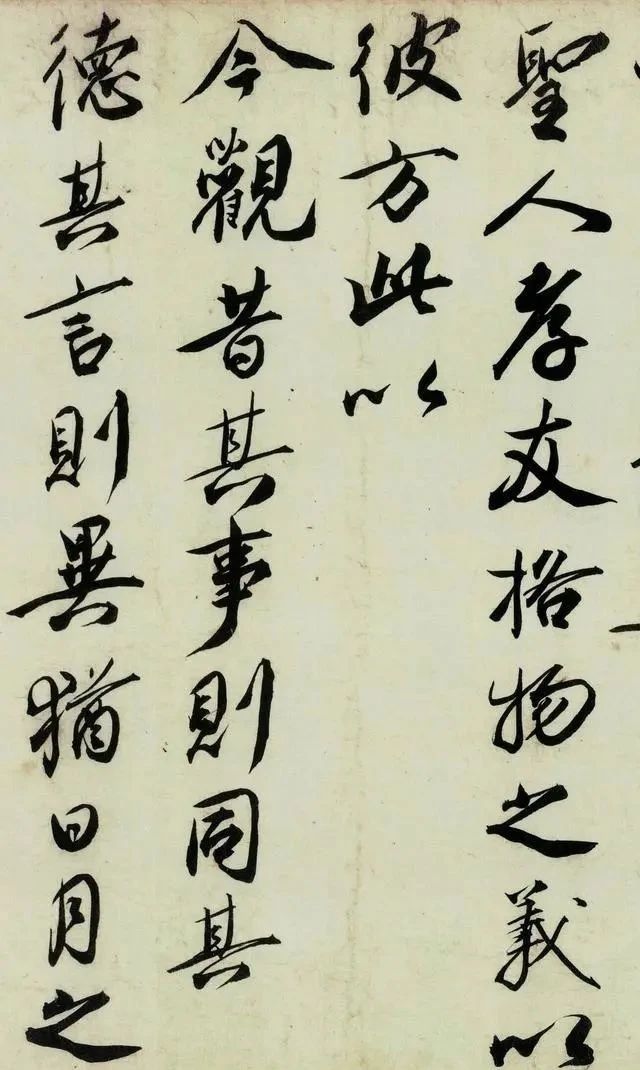 聖人孝友格物之義以
彼方此以
今觀昔其事則同其
德其言則異猶日月之